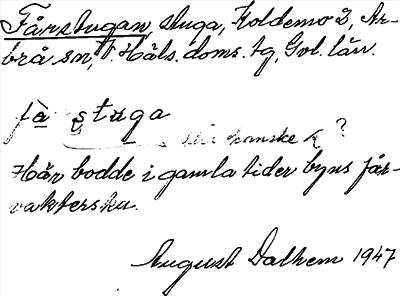 Fårstugan, stuga, Koldemo 2, Ar-
brå sn, V. Häls. doms. tg, Gvl. län.
få stuga
kanske ?
Här bodde i gamla tider byns får-
vakterska.
August Dalhem 1947